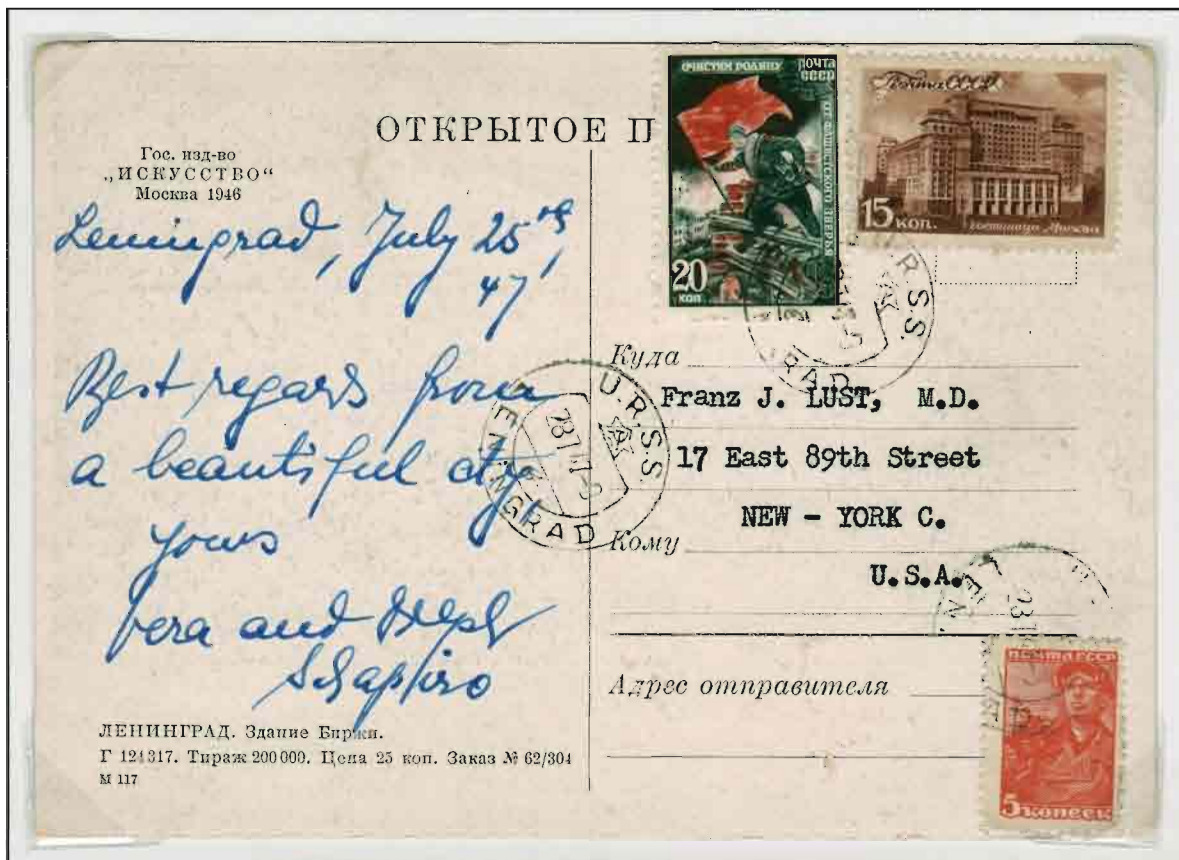 ОТКРЫТОЕ П
Гос. изд-во
„ИСКУССТВО“
Москва 1946
Leningrad, July 25th,
47
Best regards from
a beautiful city!
yours
Vera and
Schapiro
ЛЕНИНГРАД. Здание Биржи.
Г 121317. Тираж 200 000. Цена 25 коп. Заказ № 62/304
М 117
ОЧИСТИМ РОДИНУ
ОТ ФАШИСТСКОГО ЗВЕРЬЯ
ПОЧТА
СССР
20
КОП
Почта СССР
15 КОП.
гостиница Москва
U.R.S.S.
LENINGRAD
R.S.S.
GRAD
Куда
Franz J. LUST, M.D.
17 East 89th Street
NEW - YORK C.
Кому
U.S.A.
Адрес отправителя
ПОЧТА СССР
5 копеек